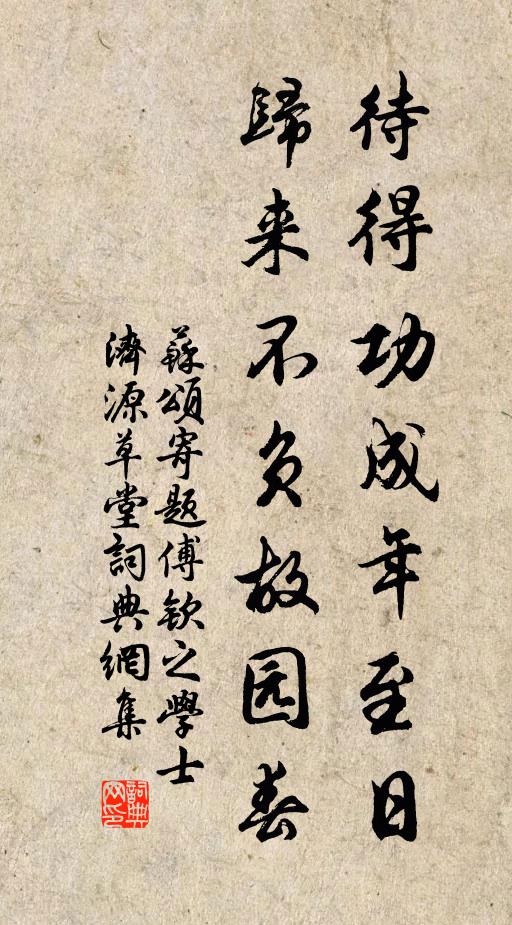 待得功成年至日
歸来不负故园春
蘇頌寄題傅欽之學士
濟源草堂詞典網集
詞典网印